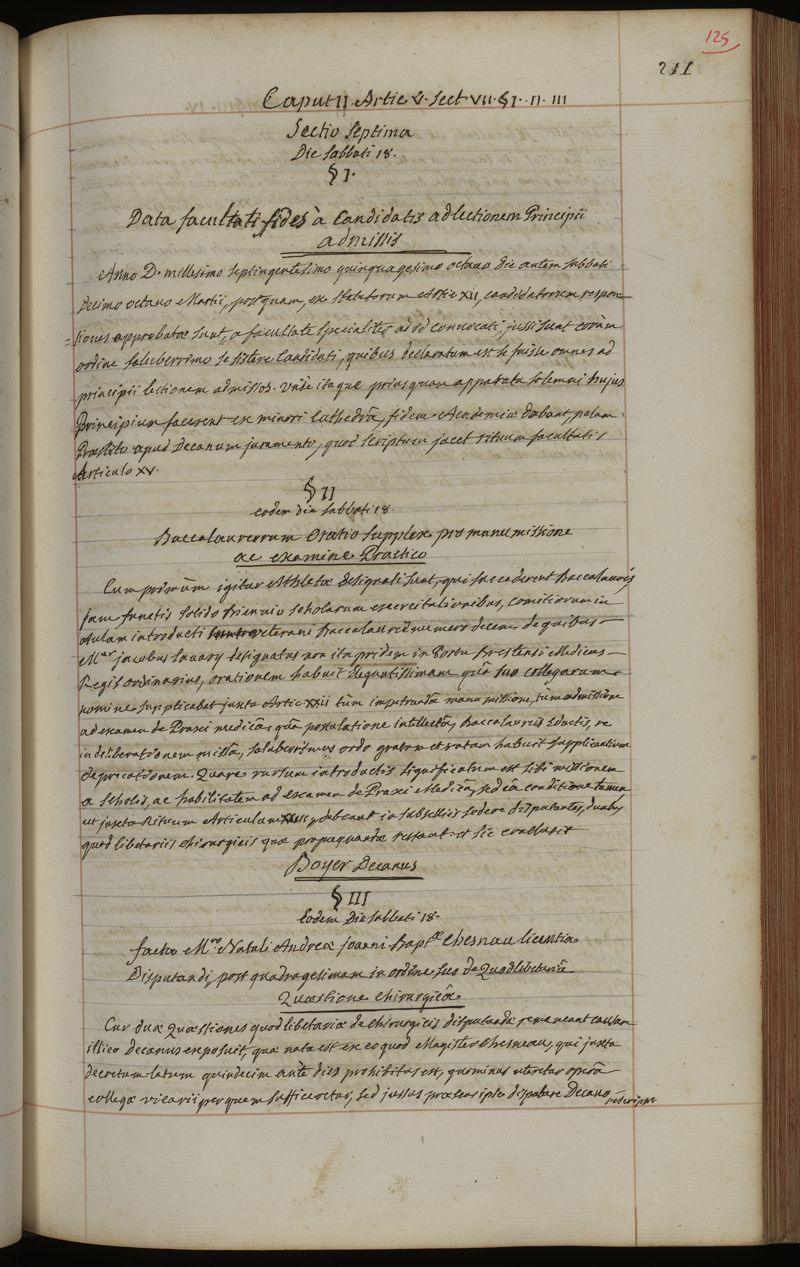 125
211
Caput II. Artic V. Sect VII. §I. II. III
Sectio Septima
Die Sabbati 18.
§ I.
Data facultati fides à Candidatis ad lectionem Principii
admissis
Anno D. millesimo septingentesimo quinquagesimo octavo die autem sabbati
Decimo octavo Martii, postquam, ex statutorum Artic XII, candidatorum respon
=siones approbatæ sunt, a facultate specialiter ad id convocati, jussi sunt coràm
ordine saluberrimo se sistere Candidati, quibus declaratum est se fuisse omnes ad
principii lectionem admissos. Unde itaque priusquam apparata solemni hujus
Principium facerent ex minori Cathedrâ, fidem Academiæ dabant, palam
Præstito apud Decanum juramento, quod scriptum jacet rituum facultatis
Articulo XV.
§ II
eodem die sabbati 18.
Baccalaureorum Oratio supplex pro manumissione
ac examine Practico
Cum primùm igitur Athletæ designati sunt, qui succederent Baccalaureis
jam functis solido biennio scholarum exercitationibus, comitiorum in
Aulam introducti veterani Baccalaurei numero decem de quibus
M.er jacobus Savary designatus non ita pridem in Portu Brestensi Medicus
Regis ordinarius, orationem habuit elegantissimam quâ suo collegarum
nomine supplicabat juxta Artic XXII tùm impetrandâ manumissione, tùm admissione
ad examen de Praxi medicâ, quâ postulatione intellectâ, Baccalaureis eductis, re
in deliberationem missâ, saluberrimus ordo gratam et ratam habuit supplicantium
deprecationem. Quare rursum introductis significatum est sibi missionem
a scholis, ac habilitatem ad examen de Praxi Medicâ, sed eâ conditione tamen
ut juxta Rituum Articulum debeant in subselliis sedere disputantes, duabus
quodlibetariis chirurgicis quæ propugnandæ restant. et sic conclusit
Boyer Decanus
§ III
Eodem Die sabbati 18.
facta M.ro Natali Andreæ joanni Bapt.æ Chesnau licentia
Disputandi, post quadragesimam in ordine suo de Quodlibetariâ
Quæstione chirurgicâ
Cur duæ Quæstiones quodlibetariæ de chirurgicis disputandæ remaneant causam
illico decanus exposuit, quæ nata est ex eo quod Magister Chesneau, qui juxta
decretum latum quindecim ante dies prohibitus est, quominus uteretur operâ
collegæ vicarii per quem sufficeretur, sed jussus præsens ipse disputare Decano
rescripsit